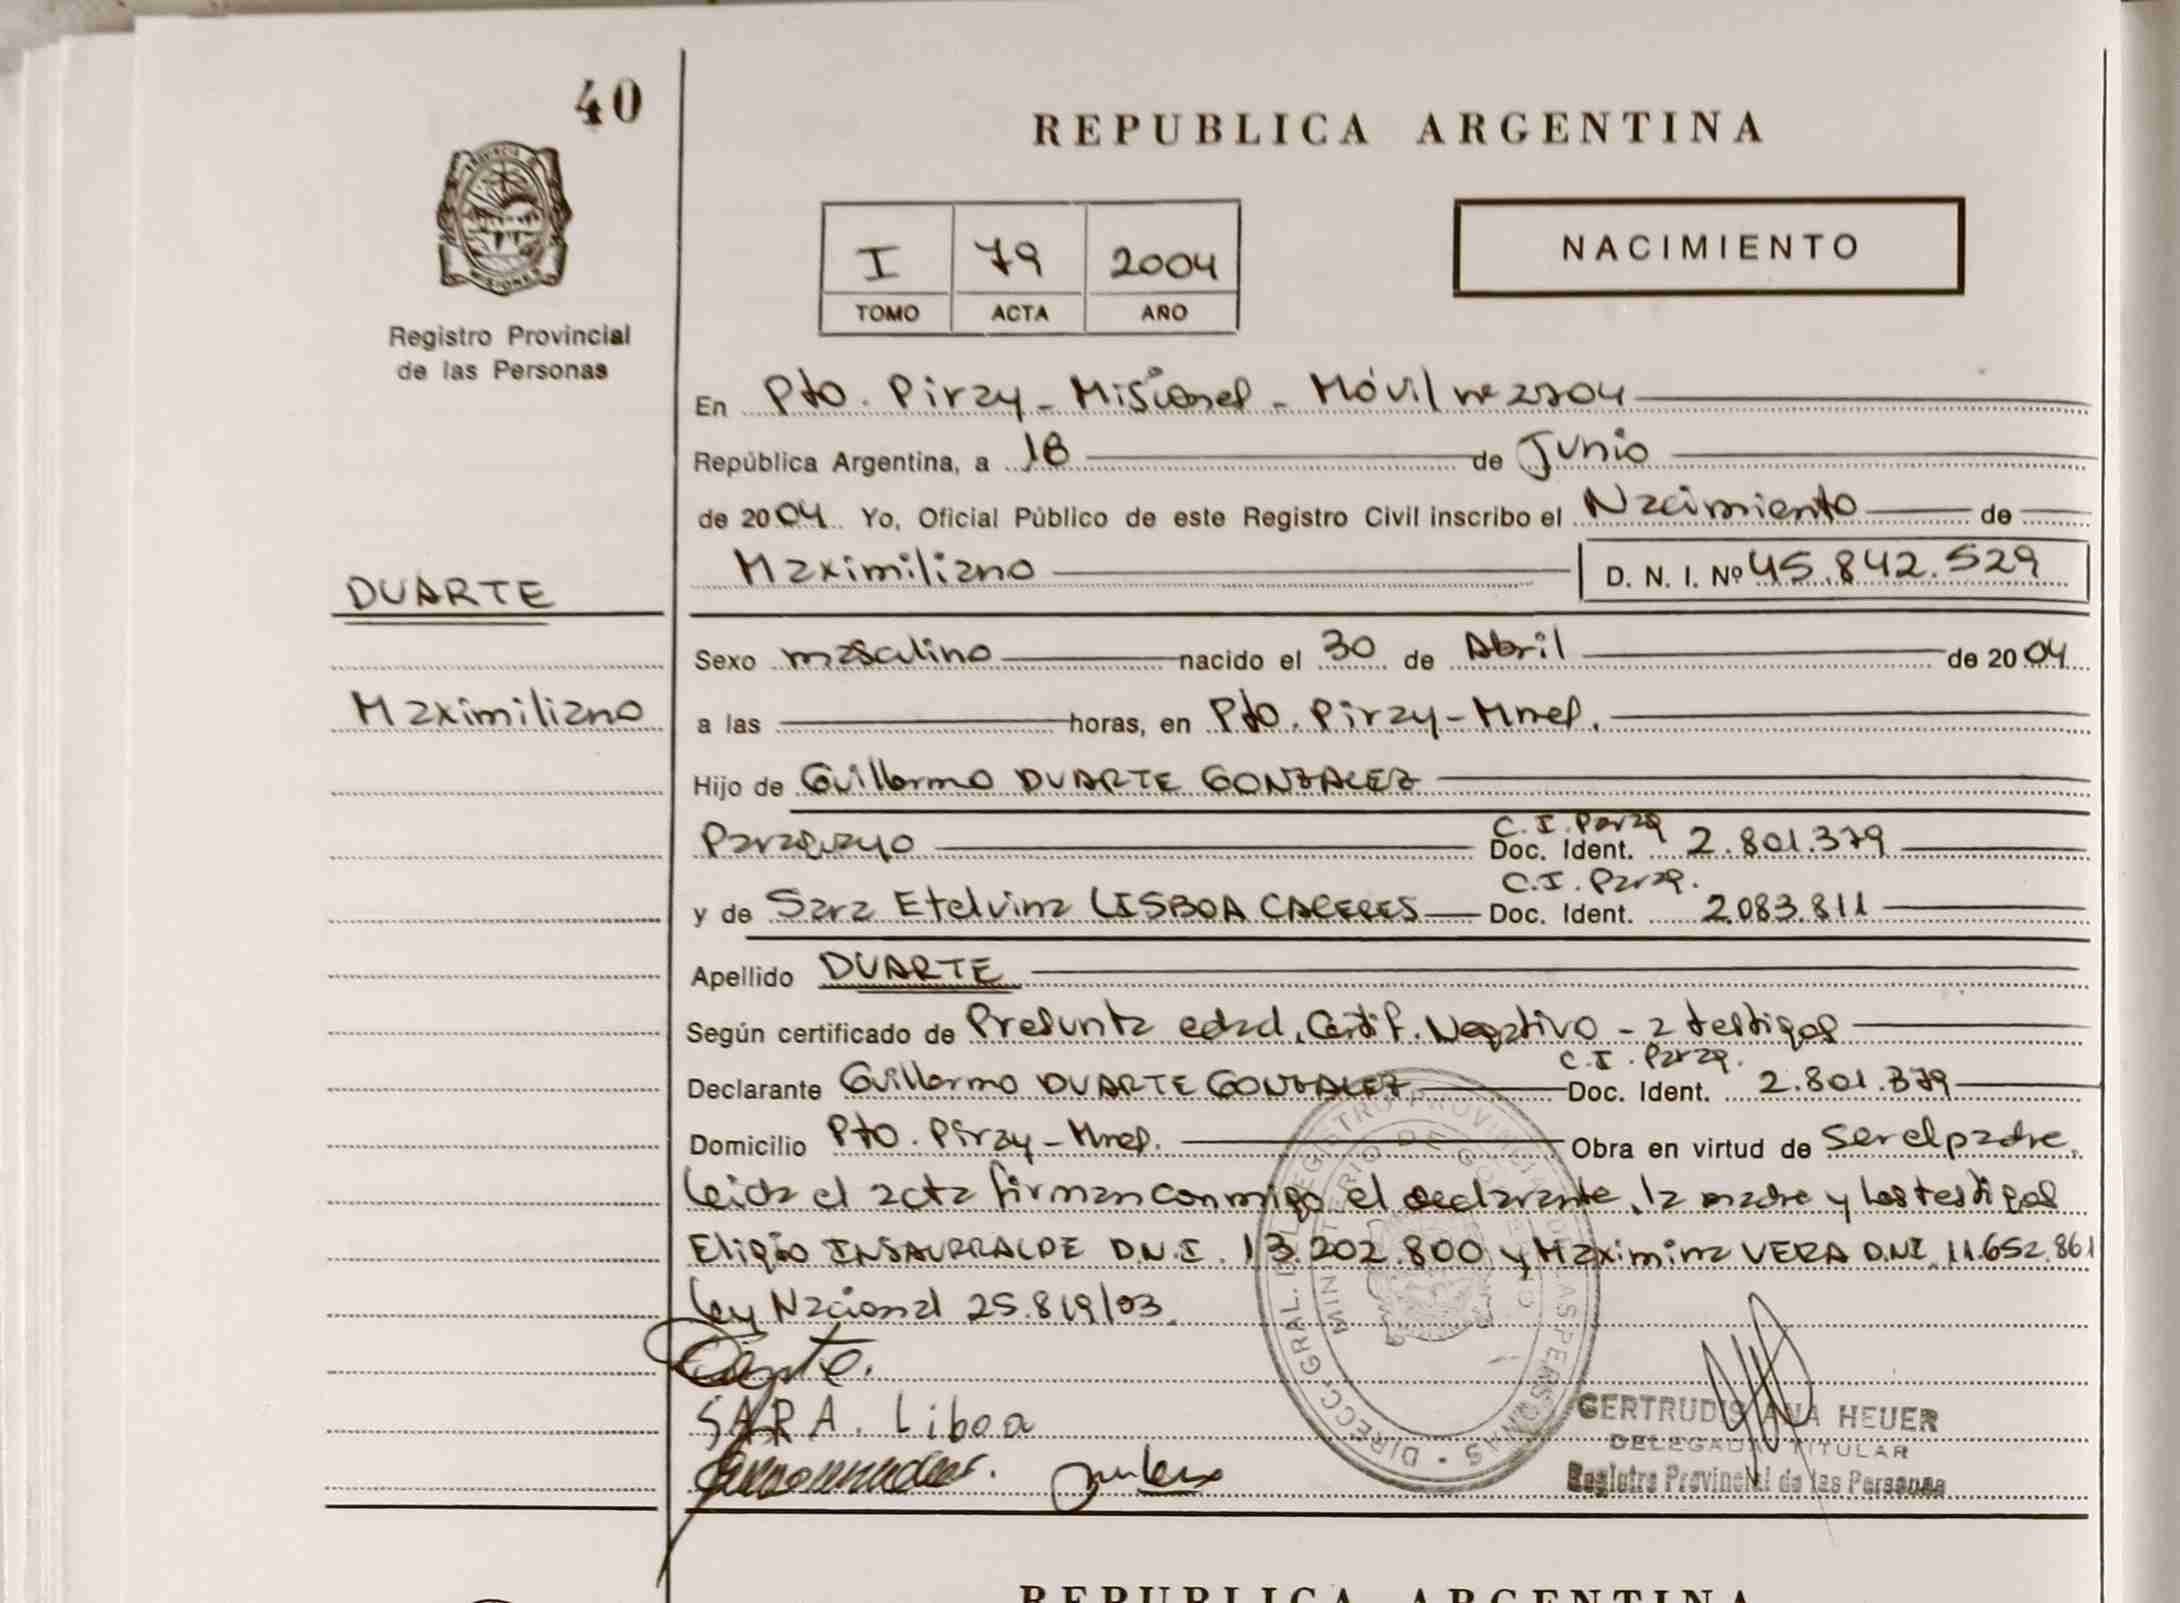 40
REPUBLICA ARGENTINA
PROVINCIA DE
MISIONES
Registro Provincial
de las Personas
I 79 2004
TOMO ACTA AÑO
NACIMIENTO
En Pto. Piray - Misiones - Móvil nº 2704
República Argentina, a 18 de Junio
de 2004 Yo, Oficial Público de este Registro Civil inscribo el Nacimiento de
Maximiliano D. N. I. Nº 45.842.529
DUARTE
Maximiliano
Sexo masculino nacido el 30 de Abril de 2004
a las horas, en Pto. Piray - Mnes.
Hijo de Guillermo DUARTE GONZALEZ
Paraguayo C.I. Parag Doc. Ident. 2.801.379
y de Sara Etelvina LISBOA CACERES C.I. Parag. Doc. Ident. 2.083.811
Apellido DUARTE
Según certificado de Presunta edad, Certif. Negativo - 2 testigos
Declarante Guillermo DUARTE GONZALEZ C.I. Parag. Doc. Ident. 2.801.379
Domicilio Pto. Piray - Mnes. Obra en virtud de ser el padre.
Leida el acta firman conmigo el declarante, la madre y los testigos
Eligio INSAURRALDE D.N.I. 13.202.800 y Maximina VERA D.N.I. 11.652.861
Ley Nacional 25.819/03.
SARA. Liboa
DIRECC. GRAL. DEL REGISTRO PROVINCIAL DE LAS PERSONAS
MINISTERIO DE GOBIERNO
GERTRUDIS ANA HEUER
DELEGADA TITULAR
Registro Provincial de las Personas
REPUBLICA ARGENTINA